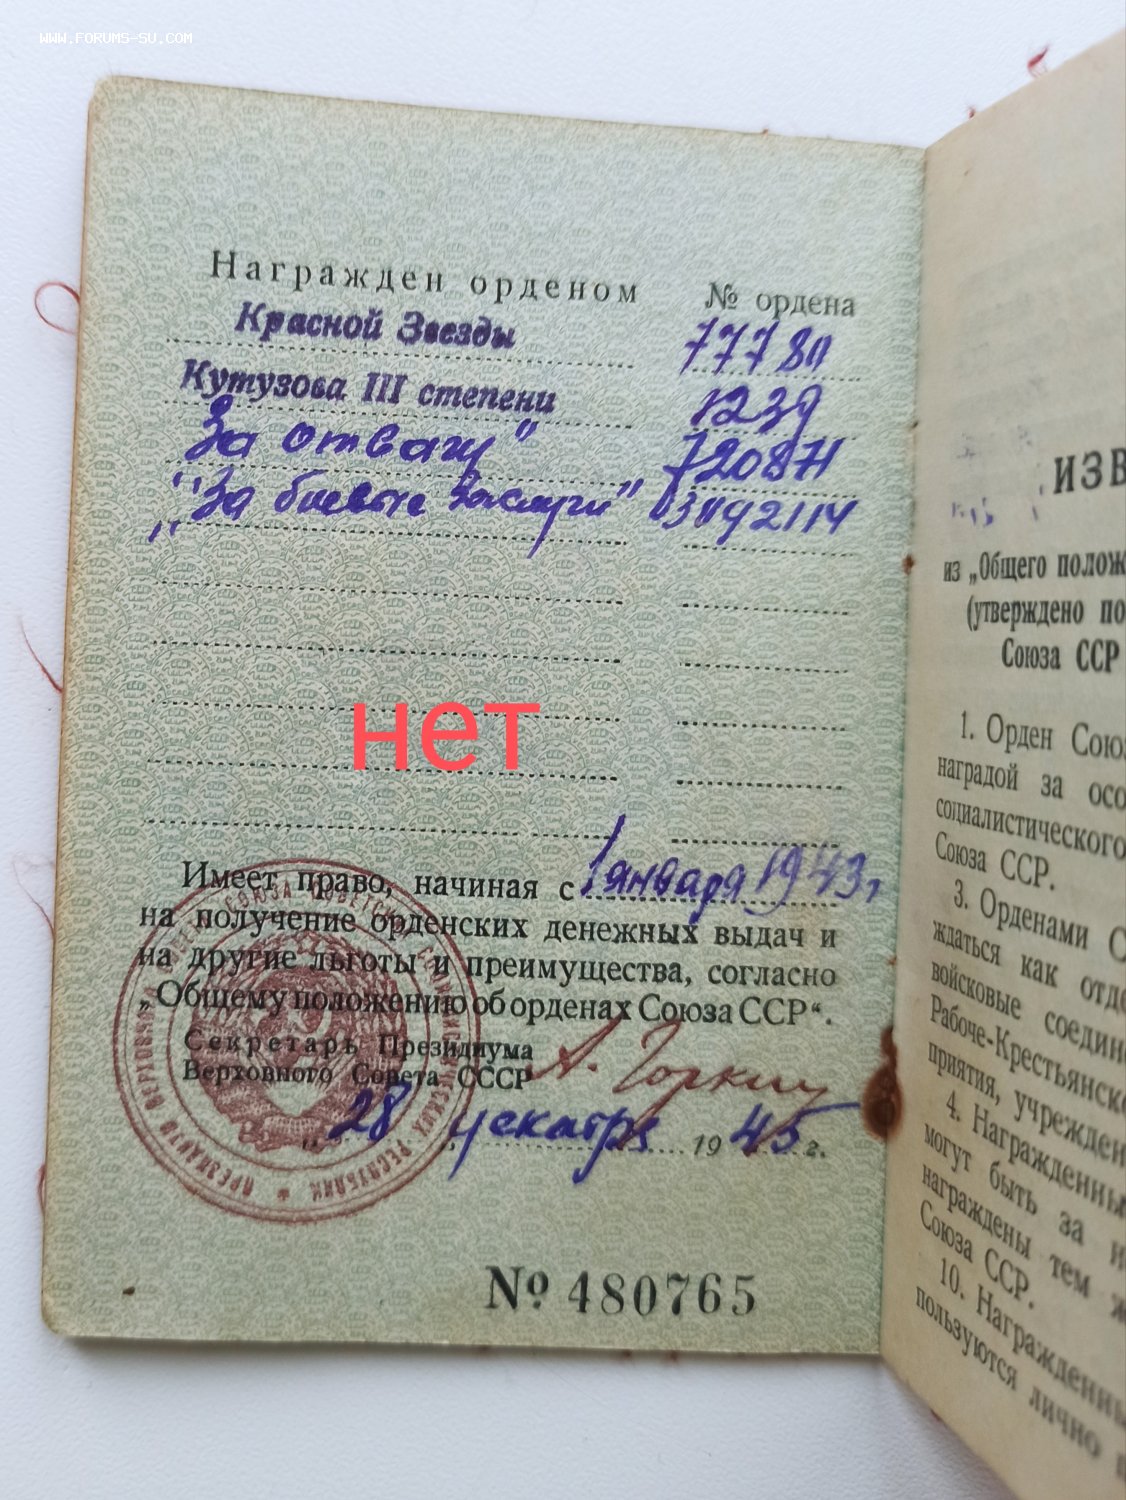 WWW.FORUMS-SU.COM
Награжден орденом № ордена
Красной Звезды 777811
Кутузова III степени 1239
"За отвагу" 720871
"За боевые заслуги"
нет
Имеет право, начиная с 1 января 1943 г
на получение орденских денежных выдач и
на другие льготы и преимущества, согласно
„Общему положению об орденах Союза ССР“.
Секретарь Президиума
Верховного Совета СССР А. Горкин
„28 декабря 1945 г.
№ 480765
ИЗВ
из „Общего полож
(утверждено по
Союза ССР
1. Орден Союз
наградой за осо
социалистического
Союза ССР.
3. Орденами С
ждаться как отде
войсковые соедин
Рабоче-Крестьянско
приятия, учрежден
4. Награжденны
могут быть за н
награждены тем ж
Союза ССР.
10. Награжденны
пользуются лично